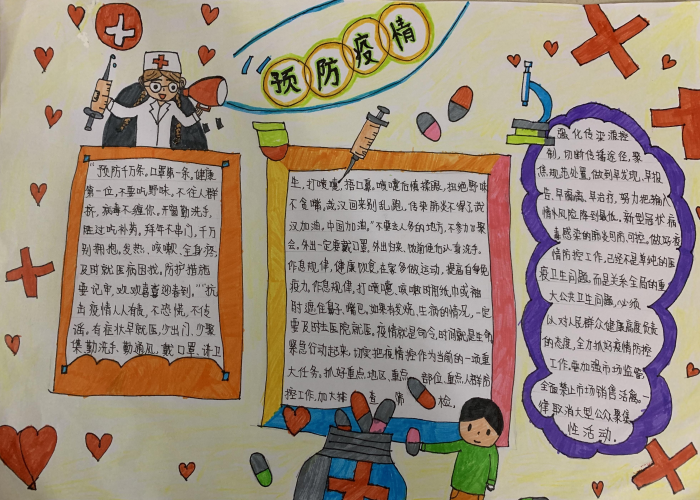 预防疫情
“预防千万条,口罩第一条,健康
第一位,不要吃野味,不往人群
挤,病毒不缠你,开窗勤洗手,
胜过吃补药,拜年不串门,千万
别拥抱,发热、咳嗽、全身疼,
及时就医病因找,防护措施
要记牢,欢欢喜喜迎春到。”“抗
击疫情人人有责,不恐慌,不传
谣,有症状早就医,少出门,少聚
集,勤洗手,勤通风,戴口罩,讲卫
生,打喷嚏,捂口鼻,喷嚏后慎揉眼,拒绝野味
不贪嘴,武汉回来别乱跑,传染肺炎不得了,武
汉加油,中国加油,“不要去人多的地方,不参加聚
会,外出一定要戴口罩,外出归来,饭前便后认真洗手。
作息规律,健康饮食,在家多做运动,提高自身免
疫力,作息规律,打喷嚏,咳嗽时用纸巾或袖
肘遮住鼻子、嘴巴,如果有发烧,生病的情况,一定
要及时去医院就医,疫情就是命令,时间就是生命
紧急行动起来,切实把疫情控作为当前的一项重
大任务,抓好重点地区、重点 部位、重点人群防
控工作,加大排 查 筛 检。
强化传染源控
制,切断传播途径,聚
焦规范处置,做到早发现、早报
告、早隔离、早治疗,努力把输入
情外风险降到最低。新型冠状病
毒感染的肺炎可防、可控,做好疫
情防控工作,已经不是单纯的医
疫卫生问题,而是关系全局的重
大公共卫生问题,必须
以对人民群众健康高度负责
的态度,全力抓好疫情防控
工作,要加强市场监管,
全面禁止市场销售活禽。一
律取消大型公众聚集
性活动。